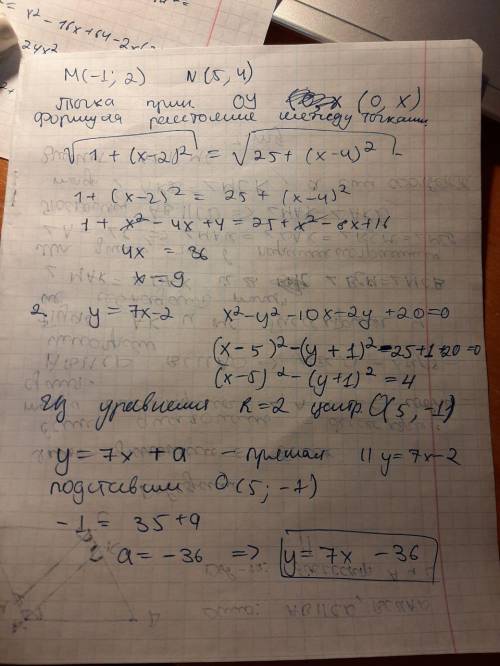 x² - 16x + 64 - 2x
24x²
M(-1; 2) N(5, 4)
Точка прин OY (0, x)
формула расстояние между точками
√1 + (x-2)² = √25 + (x-4)²
1 + (x-2)² = 25 + (x-4)²
1 + x² - 4x + 4 = 25 + x² - 8x + 16
4x = 36
x = 9
2. y = 7x - 2 x² - y² - 10x - 2y + 20 = 0
(x - 5)² - (y + 1)² - 25 + 1 + 20 = 0
(x-5)² - (y+1)² = 4
Из уравнения R = 2 центр O(5, -1)
y = 7x + a - прямая || y = 7x - 2
подставим O(5; -1)
-1 = 35 + a
a = -36 => y = 7x - 36